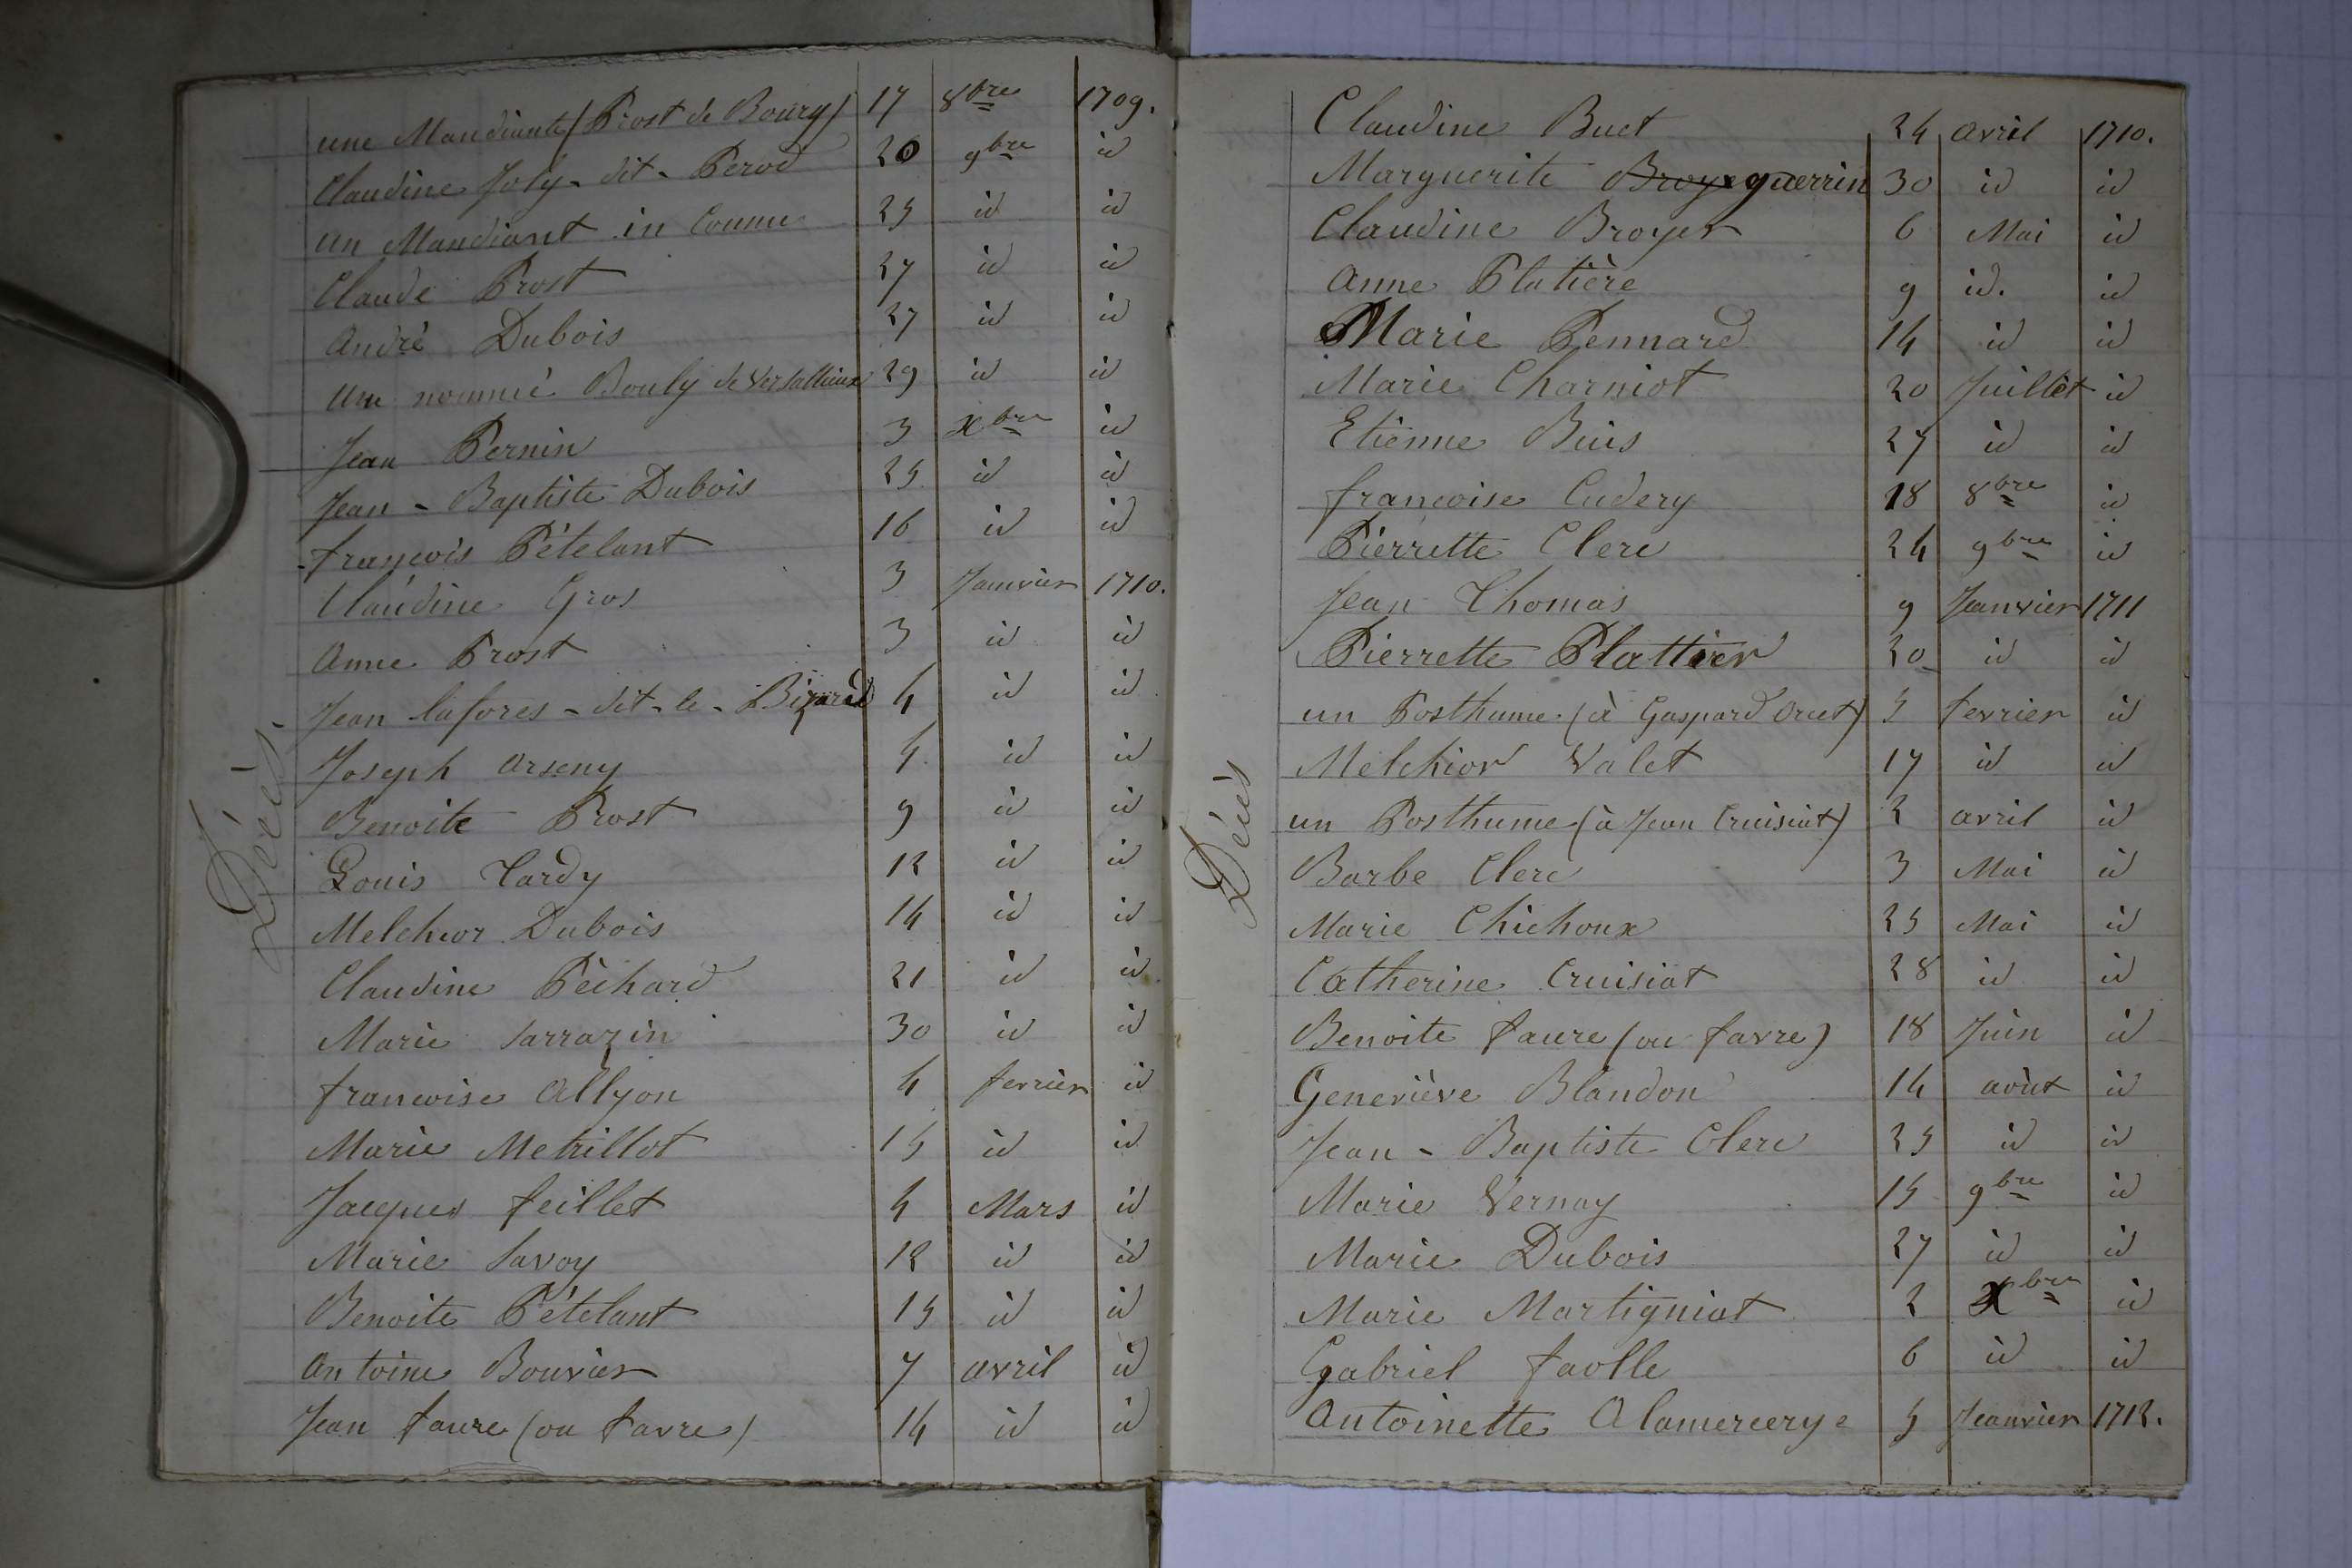 Décès.
une Mandiante (Prost de Bourg) 17 8bre 1709.
Claudine Joly - dit - Perod 20 9bre id
un Mandiant in Connu 25 id id
Claude Prost 27 id id
André Dubois 27 id id
Un nommé Bouly de Versallieux 29 id id
Jean Pernin 3 xbre id
Jean - Baptiste Dubois 25 id id
françois Pételant 16 id id
Claudine Gros 3 Janvier 1710.
Anne Prost 3 id id
Jean lafores - dit - le - Bizard 4 id id
Joseph Arseny 4 id id
Benoite Prost 9 id id
Louis Tardy 12 id id
Melchior Dubois 14 id id
Claudine Péchard 21 id id
Marie Sarrazin 30 id id
francoise Allyon 4 fevrier id
Marie Metrillot 15 id id
Jacques feillet 4 Mars id
Marie Savoy 12 id id
Benoite Pételant 15 id id
Antoine Bouvier 7 avril id
Jean faure (ou favre) 14 id id
Décès
Claudine Buet 24 avril 1710.
Marguerite Broye guerrin 30 id id
Claudine Broyer 6 Mai id
Anne Platière 9 id. id
Marie Pennard 14 id id
Marie Charniot 20 Juillet id
Etienne Buis 27 id id
francoise Cudery 18 8bre id
Pierrette Clerc 24 9bre id
Jean Thomas 9 Janvier 1711
Pierrette Plattier 20 id id
un Posthume (à Gaspard Oruet) 5 fevrier id
Melchior Valet 17 id id
un Posthume (à Jean Cruisiat) 2 avril id
Barbe Clerc 3 Mai id
Marie Chichoux 25 Mai id
Catherine Cruisiat 28 id id
Benoite faure (ou favre) 18 Juin id
Geneviève Blandon 14 août id
Jean - Baptiste Clerc 25 id id
Marie Vernay 15 9bre id
Marie Dubois 27 id id
Marie Martigniat 2 Xbre id
Gabriel faolle 6 id id
Antoinette Alamercerye 5 Janvier 1712.